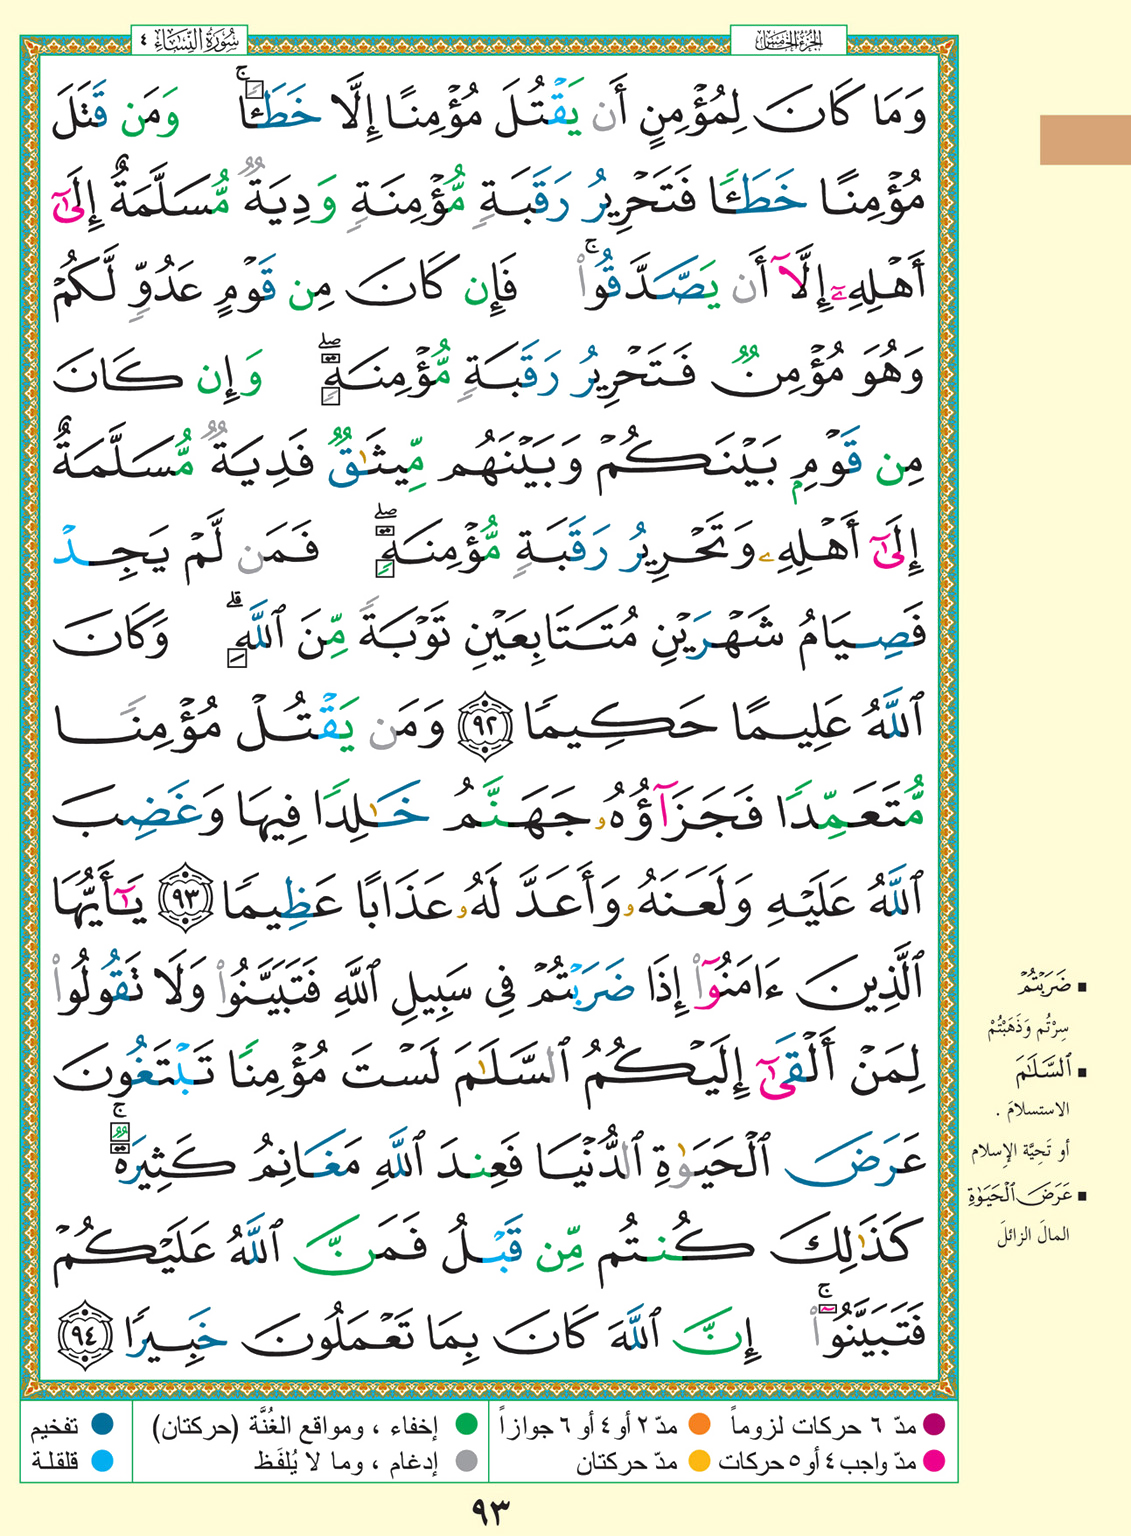 سُورَةُ النِّسَاءِ ٤
الجُزْءُ الخَامِسُ
وَمَا كَانَ لِمُؤْمِنٍ أَن يَقْتُلَ مُؤْمِنًا إِلَّا خَطَـًٔا ۚ وَمَن قَتَلَ
مُؤْمِنًا خَطَـًٔا فَتَحْرِيرُ رَقَبَةٍ مُّؤْمِنَةٍ وَدِيَةٌ مُّسَلَّمَةٌ إِلَىٰٓ
أَهْلِهِۦٓ إِلَّآ أَن يَصَّدَّقُوا۟ ۚ فَإِن كَانَ مِن قَوْمٍ عَدُوٍّ لَّكُمْ
وَهُوَ مُؤْمِنٌ فَتَحْرِيرُ رَقَبَةٍ مُّؤْمِنَةٍ ۖ وَإِن كَانَ
مِن قَوْمٍۭ بَيْنَكُمْ وَبَيْنَهُم مِّيثَـٰقٌ فَدِيَةٌ مُّسَلَّمَةٌ
إِلَىٰٓ أَهْلِهِۦ وَتَحْرِيرُ رَقَبَةٍ مُّؤْمِنَةٍ ۖ فَمَن لَّمْ يَجِدْ
فَصِيَامُ شَهْرَيْنِ مُتَتَابِعَيْنِ تَوْبَةً مِّنَ ٱللَّهِ ۗ وَكَانَ
ٱللَّهُ عَلِيمًا حَكِيمًا ٩٢ وَمَن يَقْتُلْ مُؤْمِنًا
مُّتَعَمِّدًا فَجَزَآؤُهُۥ جَهَنَّمُ خَـٰلِدًا فِيهَا وَغَضِبَ
ٱللَّهُ عَلَيْهِ وَلَعَنَهُۥ وَأَعَدَّ لَهُۥ عَذَابًا عَظِيمًا ٩٣ يَـٰٓأَيُّهَا
ٱلَّذِينَ ءَامَنُوٓا۟ إِذَا ضَرَبْتُمْ فِى سَبِيلِ ٱللَّهِ فَتَبَيَّنُوا۟ وَلَا تَقُولُوا۟
لِمَنْ أَلْقَىٰٓ إِلَيْكُمُ ٱلسَّلَـٰمَ لَسْتَ مُؤْمِنًا تَبْتَغُونَ
عَرَضَ ٱلْحَيَوٰةِ ٱلدُّنْيَا فَعِندَ ٱللَّهِ مَغَانِمُ كَثِيرَةٌ ۚ
كَذَٰلِكَ كُنتُم مِّن قَبْلُ فَمَنَّ ٱللَّهُ عَلَيْكُمْ
فَتَبَيَّنُوٓا۟ ۚ إِنَّ ٱللَّهَ كَانَ بِمَا تَعْمَلُونَ خَبِيرًا ٩٤
ضَرَبْتُمْ
سِرْتُم وَذَهَبْتُمْ
ٱلسَّلَـٰمَ
الاستسلامَ .
أو تَحِيَّة الإِسلام
عَرَضَ ٱلْحَيَوٰةِ
المالَ الزائلَ
مدّ ٦ حركات لزوماً
مدّ ٢ أو ٤ أو ٦ جوازاً
إخفاء ، ومواقع الغُنَّة (حركتان)
تفخيم
مدّ واجب ٤ أو ٥ حركات
مدّ حركتان
إدغام ، وما لا يُلفَظ
قلقلة
٩٣